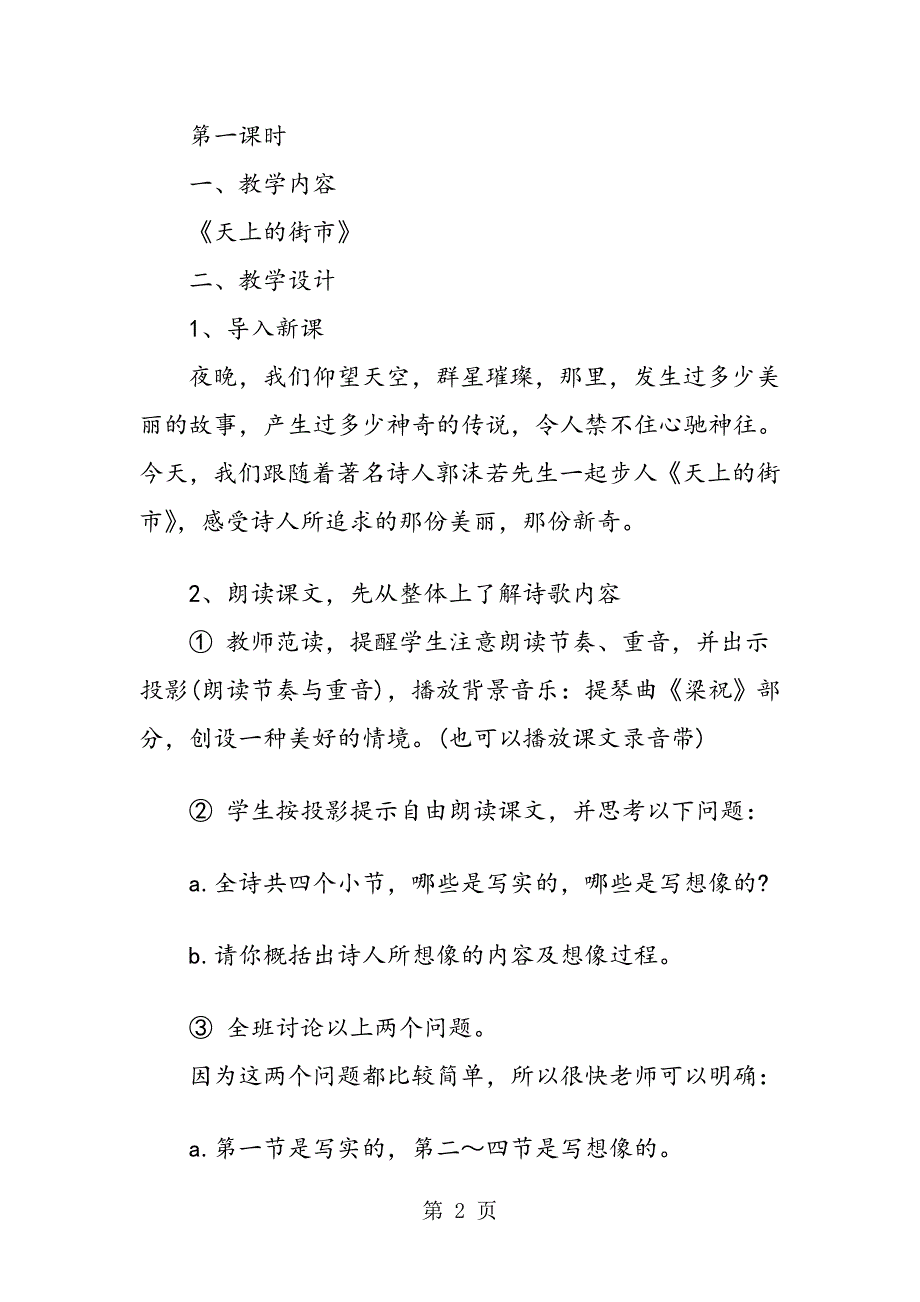 第一课时
一、教学内容
《天上的街市》
二、教学设计
1、导入新课
夜晚，我们仰望天空，群星璀璨，那里，发生过多少美
丽的故事，产生过多少神奇的传说，令人禁不住心驰神往。
今天，我们跟随着著名诗人郭沫若先生一起步人《天上的街
市》，感受诗人所追求的那份美丽，那份新奇。
2、朗读课文，先从整体上了解诗歌内容
① 教师范读，提醒学生注意朗读节奏、重音，并出示
投影(朗读节奏与重音)，播放背景音乐：提琴曲《梁祝》部
分，创设一种美好的情境。(也可以播放课文录音带)
② 学生按投影提示自由朗读课文，并思考以下问题：
a.全诗共四个小节，哪些是写实的，哪些是写想像的?
b.请你概括出诗人所想像的内容及想像过程。
③ 全班讨论以上两个问题。
因为这两个问题都比较简单，所以很快老师可以明确：
a.第一节是写实的，第二～四节是写想像的。
第 2 页